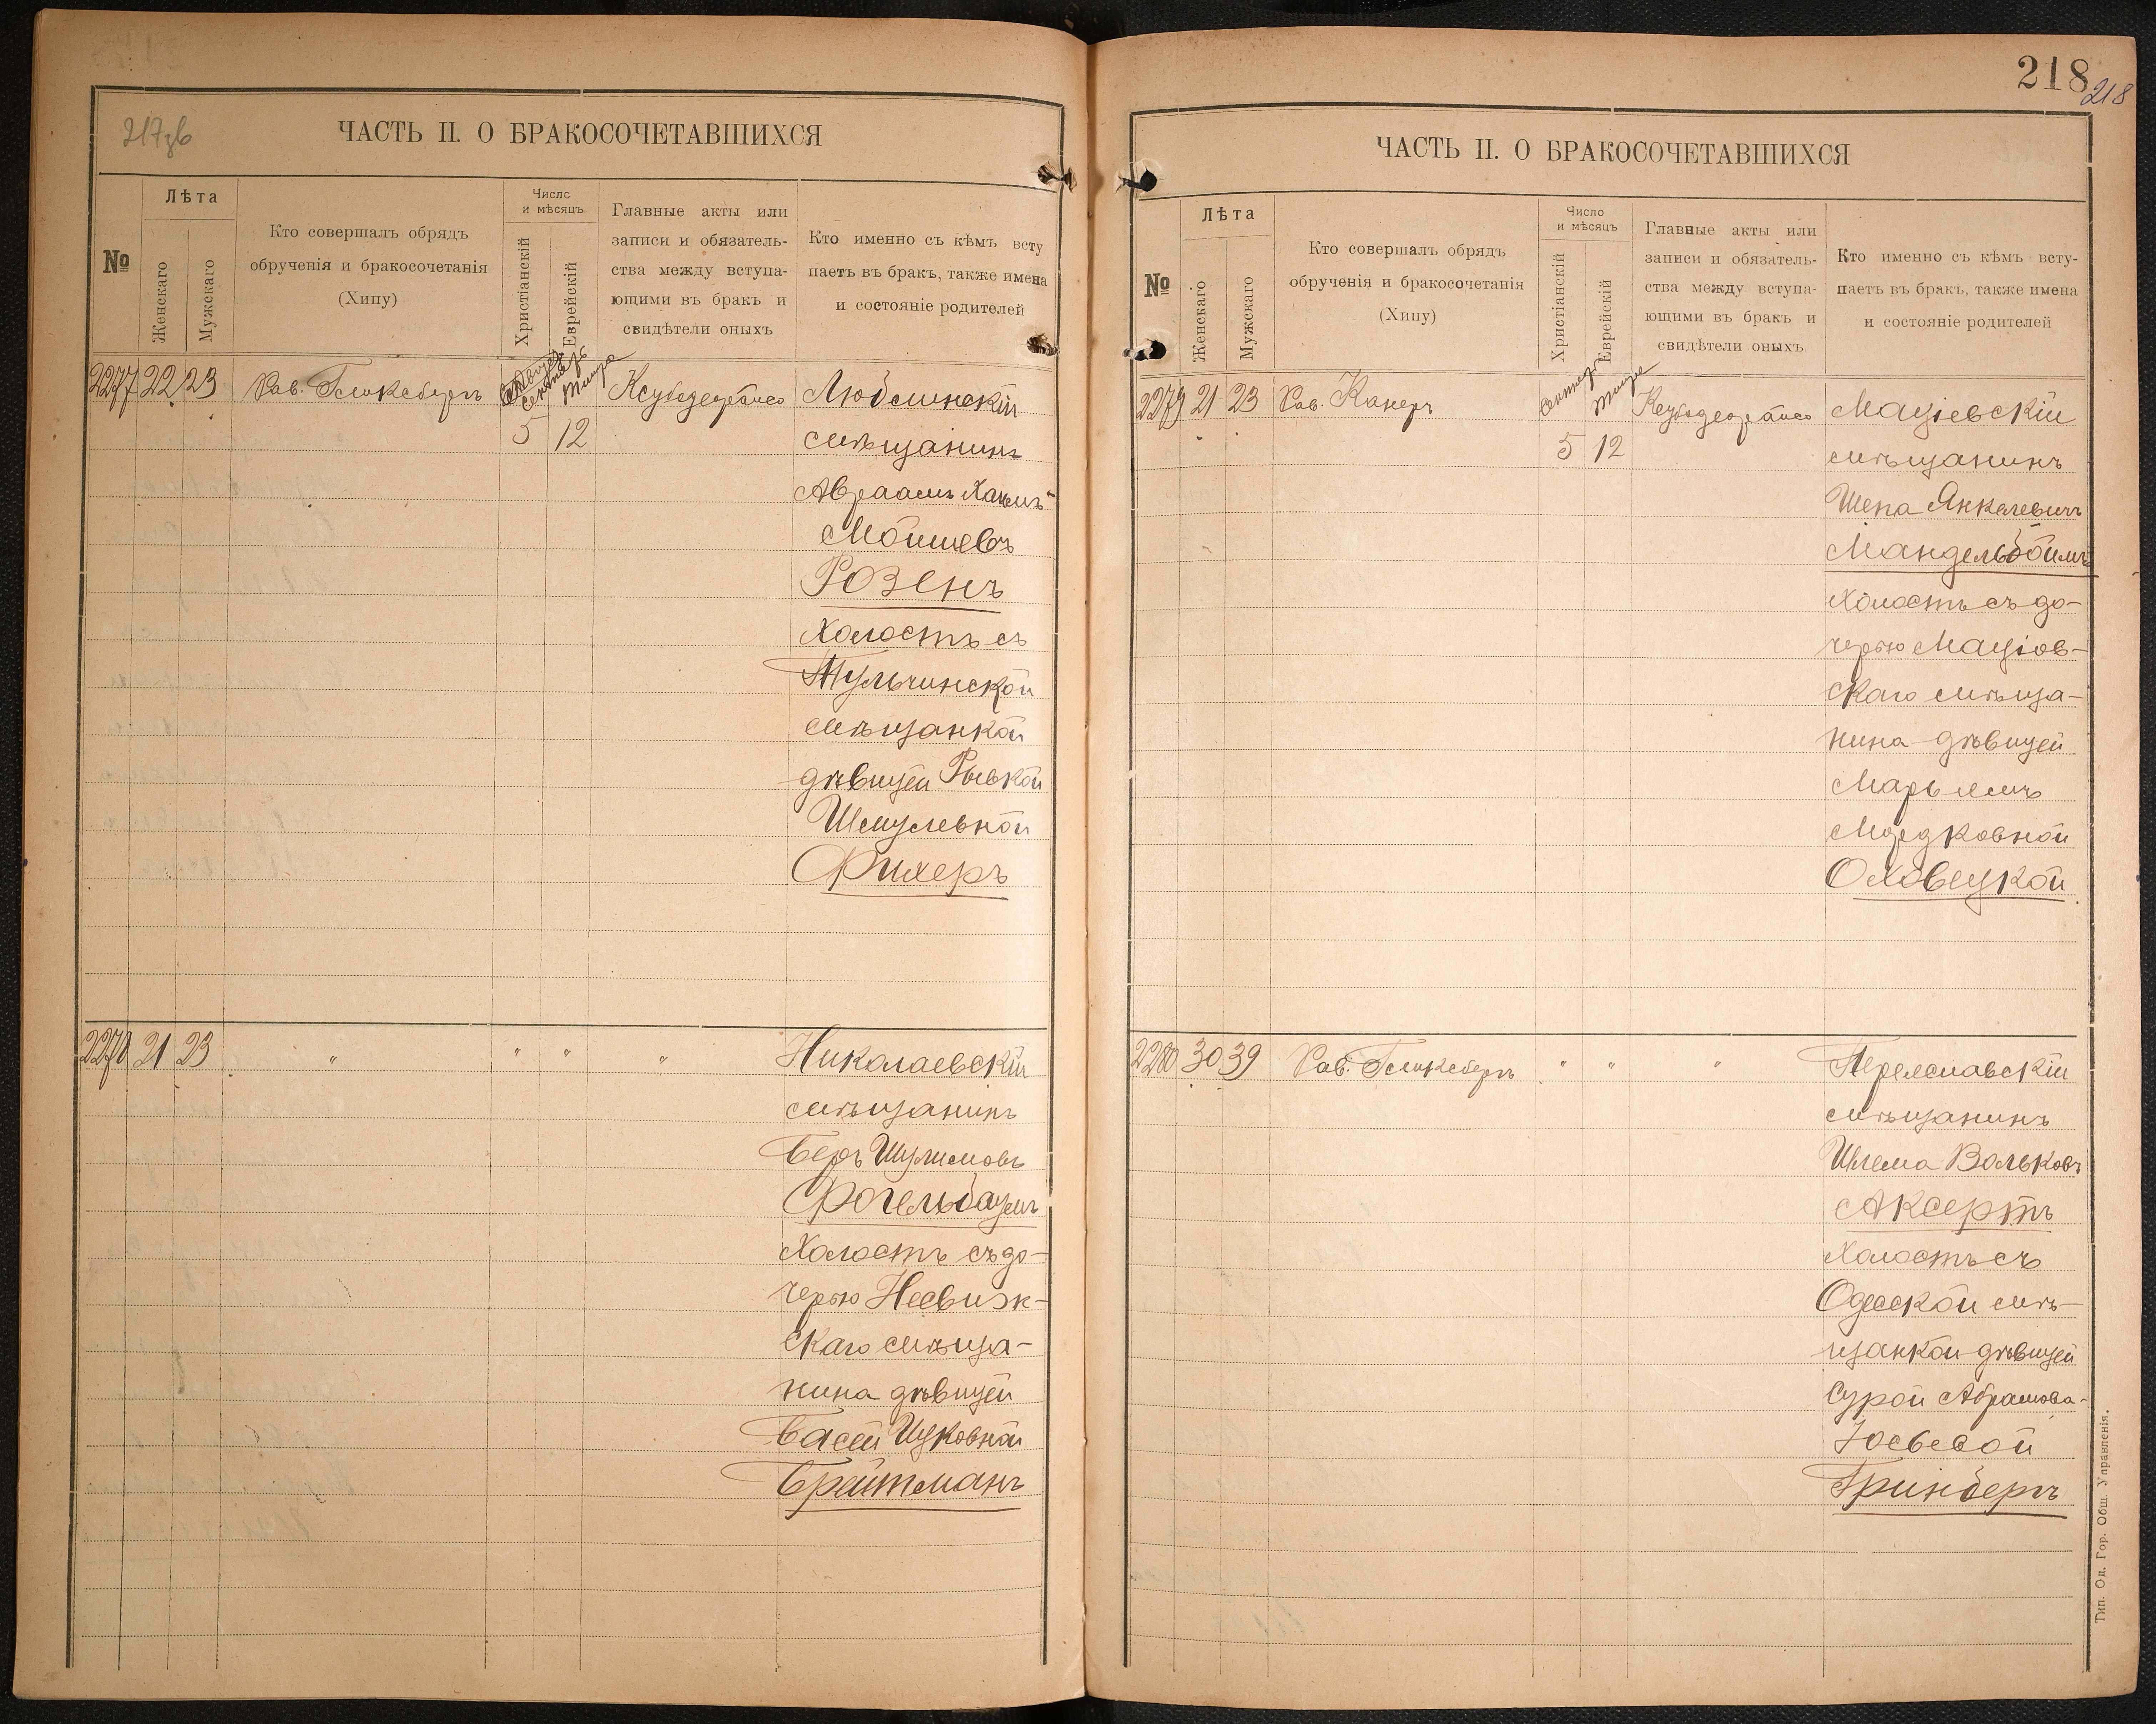 217зв
ЧАСТЬ II. О БРАКОСОЧЕТАВШИХСЯ
№
Лѣта
Женскаго
Мужскаго
Кто совершалъ обрядъ
обрученія и бракосочетанія
(Хипу)
Число
и мѣсяцъ
Христіанскій
Еврейскій
Главные акты или
записи и обязатель-
ства между вступа-
ющими въ бракъ и
свидѣтели оныхъ
Кто именно съ кѣмъ всту
паетъ въ бракъ, также имена
и состояніе родителей
2277 22 23 Рав. Гликсбергъ Сентябрь Тишре
5 12
Люблинскій
мѣщанинъ
Авраамъ Хаимъ
Мойшевъ
Розенъ
холостъ съ
Тульчинской
мѣщанкой
дѣвицей Рывкой
Шмулевной
Фихеръ
2278 21 23 " " " "
Николаевскій
мѣщанинъ
Беръ Шулимовъ
Фогельбаумъ
холостъ съ до-
черью Несвиж-
скаго мѣща-
нина дѣвицей
Басей Ицковной
Брейтманъ
218
218
ЧАСТЬ II. О БРАКОСОЧЕТАВШИХСЯ
№
Лѣта
Женскаго
Мужскаго
Кто совершалъ обрядъ
обрученія и бракосочетанія
(Хипу)
Число
и мѣсяцъ
Христіанскій
Еврейскій
Главные акты или
записи и обязатель-
ства между вступа-
ющими въ бракъ и
свидѣтели оныхъ
Кто именно съ кѣмъ всту-
паетъ въ бракъ, также имена
и состояніе родителей
2279 21 23 Рав. Канеръ Сентябрь Тишре
5 12
Маціевскій
мѣщанинъ
Шепа Янкелевичъ
Мандельбоймъ
холостъ съ до-
черью Маціов-
скаго мѣща-
нина дѣвицей
Марьямъ
Мордковной
Оховецкой
2280 30 39 Рав. Гликсбергъ " " "
Переяславскій
мѣщанинъ
Шлема Вольковъ
Аксертъ
холостъ съ
Одесской мѣ-
щанкой дѣвицей
Сурой Абрамова-
Іосьевой
Гринбергъ
Тип. Од. Гор. Общ. Управленія.